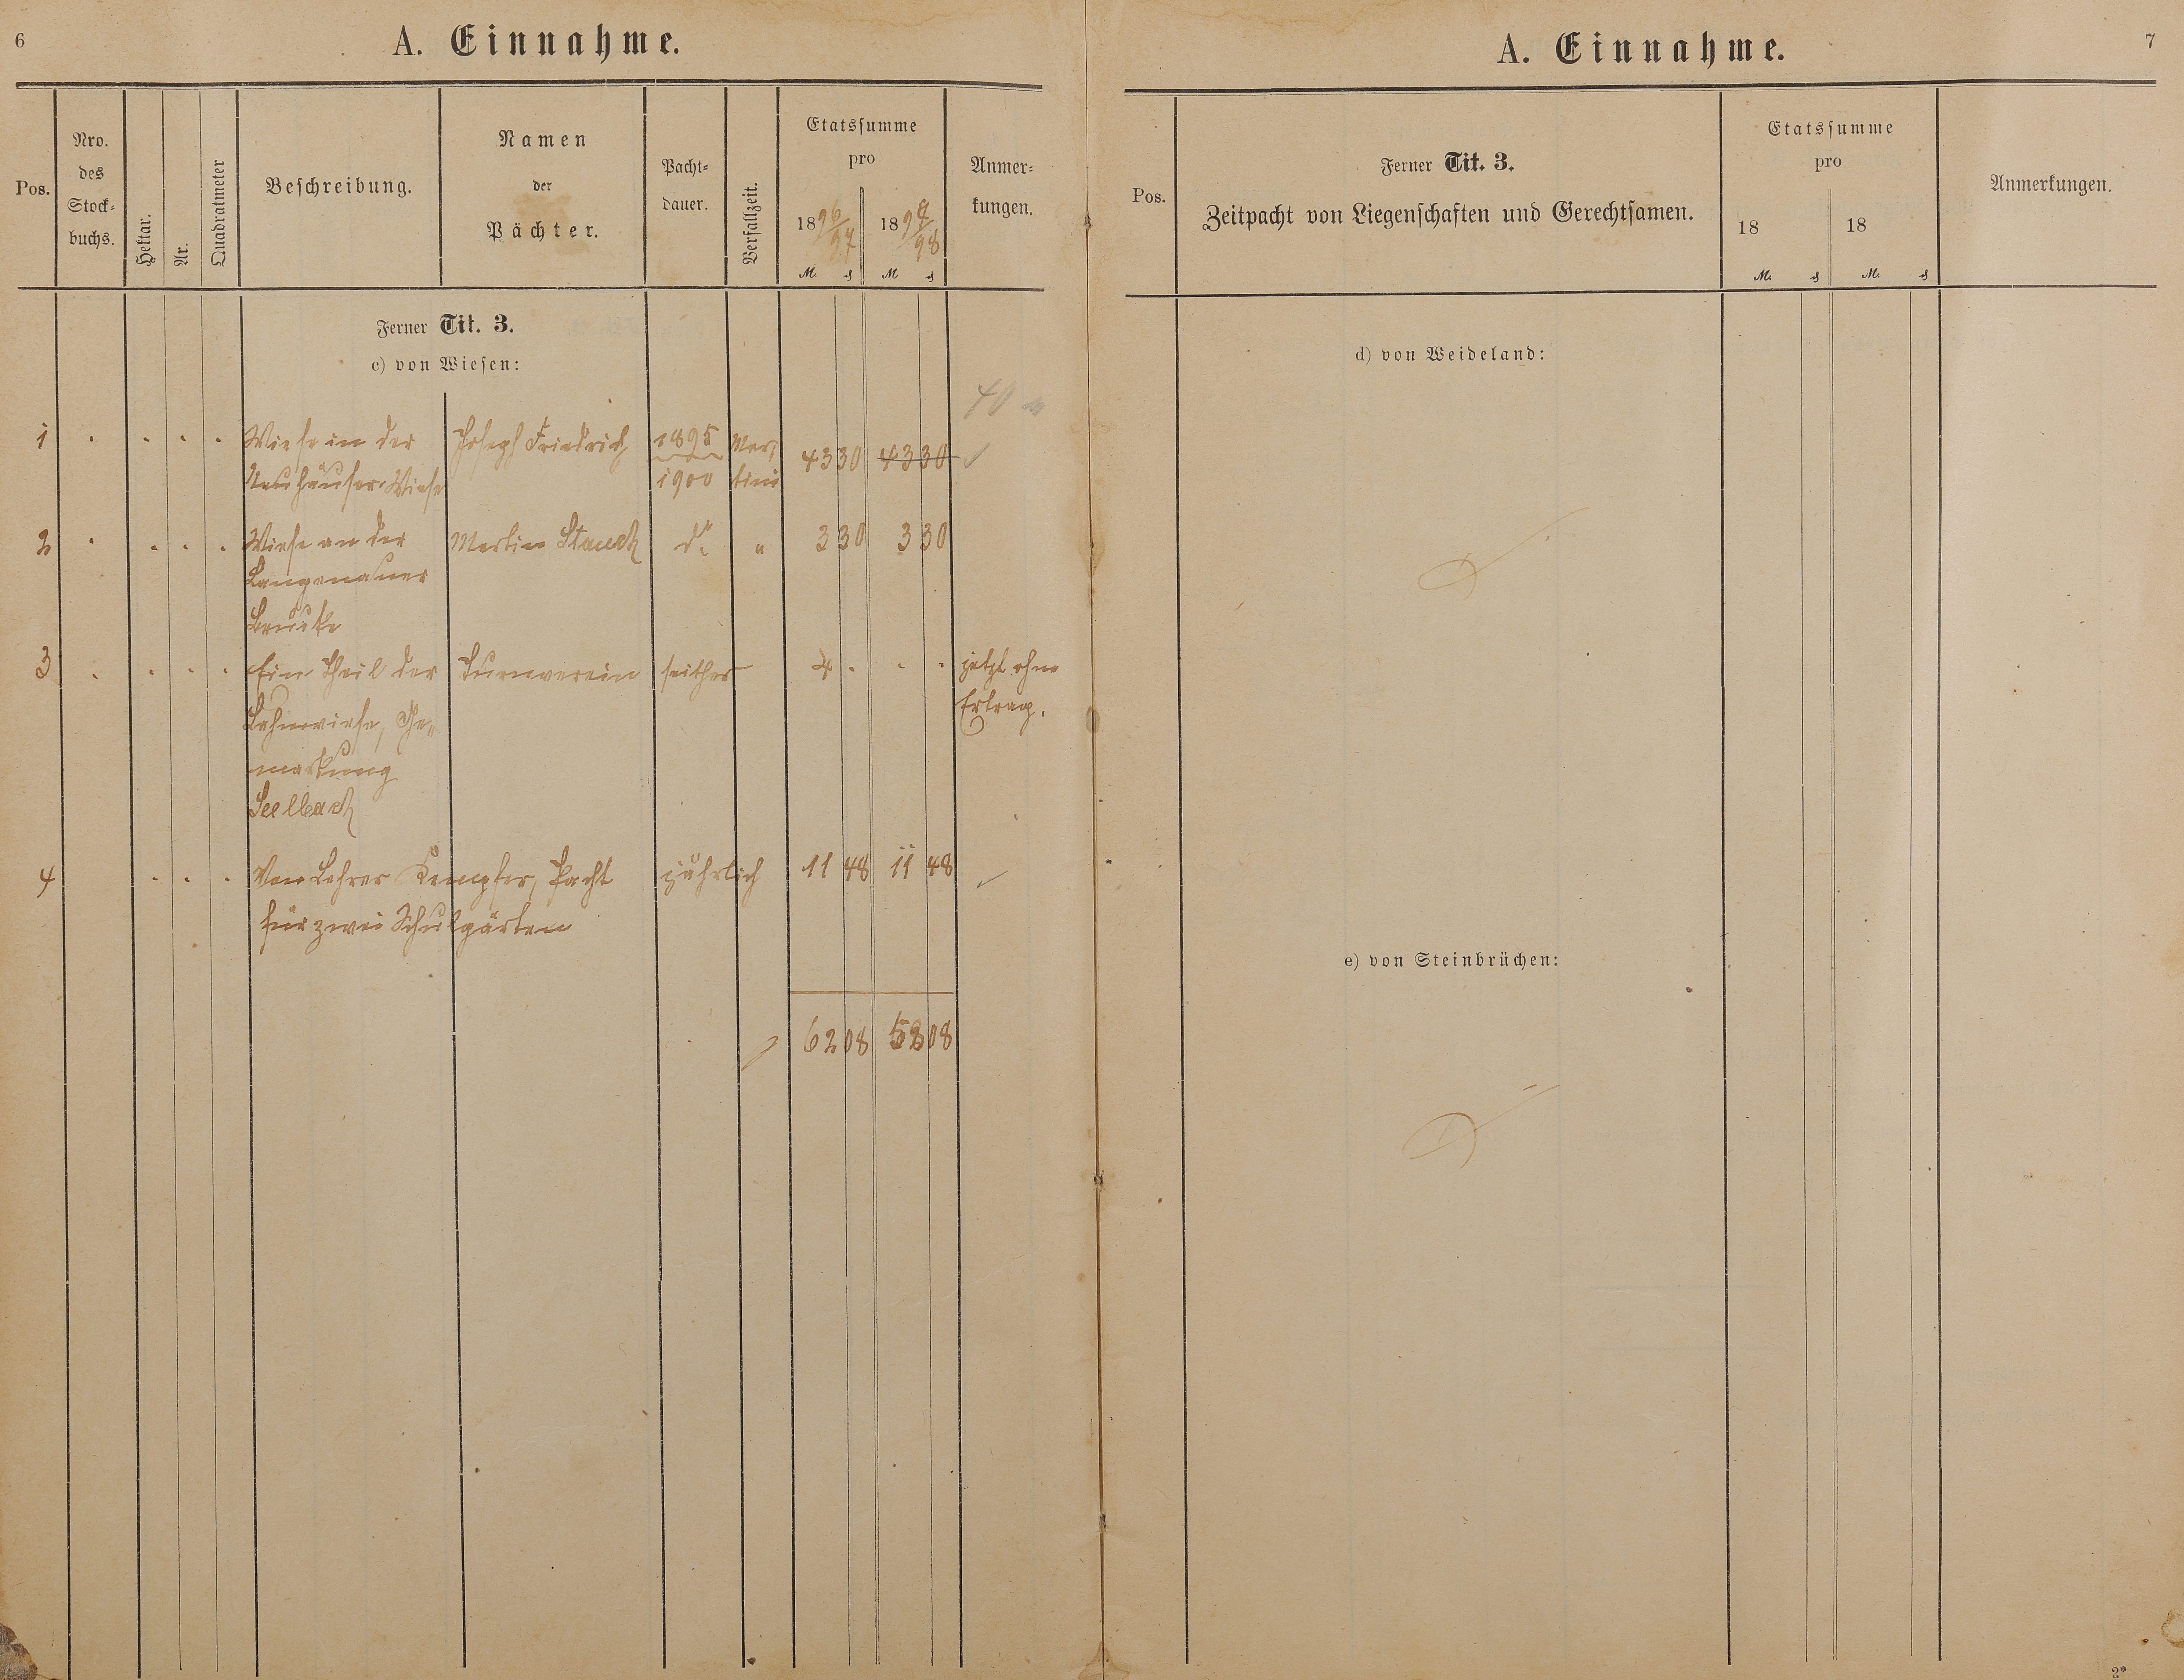 6
A. Einnahme.
Pos.
Nro. des Stock- buchs.
Hektar.
Ar.
Quadratmeter
Beschreibung.
Namen der Pächter.
Pacht- dauer.
Verfallzeit.
Etatssumme pro
1896/97 1897/98
M. ₰ M ₰
Anmer- kungen.
Ferner Tit. 3.
c) von Wiesen:
40
1 Wiese in der Joseph Friedrich 1895 Mar- 43 30 43 30
Neuhäuser Wiese 1900 tini
2 Wiese an der Martin Stauch do. " 3 30 3 30
Langenauer
Brücke
3 Ein Theil der Turnverein seither 4 . . . jetzt ohne
Lahnwiese, Ge- Ertrag.
markung
Seelbach
4 Von Lehrer Kempfer, Pacht jährlich 11 48 11 48
für zwei Schulgärten
62 08 58 08
A. Einnahme.
7
Pos.
Ferner Tit. 3.
Zeitpacht von Liegenschaften und Gerechtsamen.
Etatssumme
pro
18 18
M. ₰ M. ₰
Anmerkungen.
d) von Weideland:
e) von Steinbrüchen:
2*